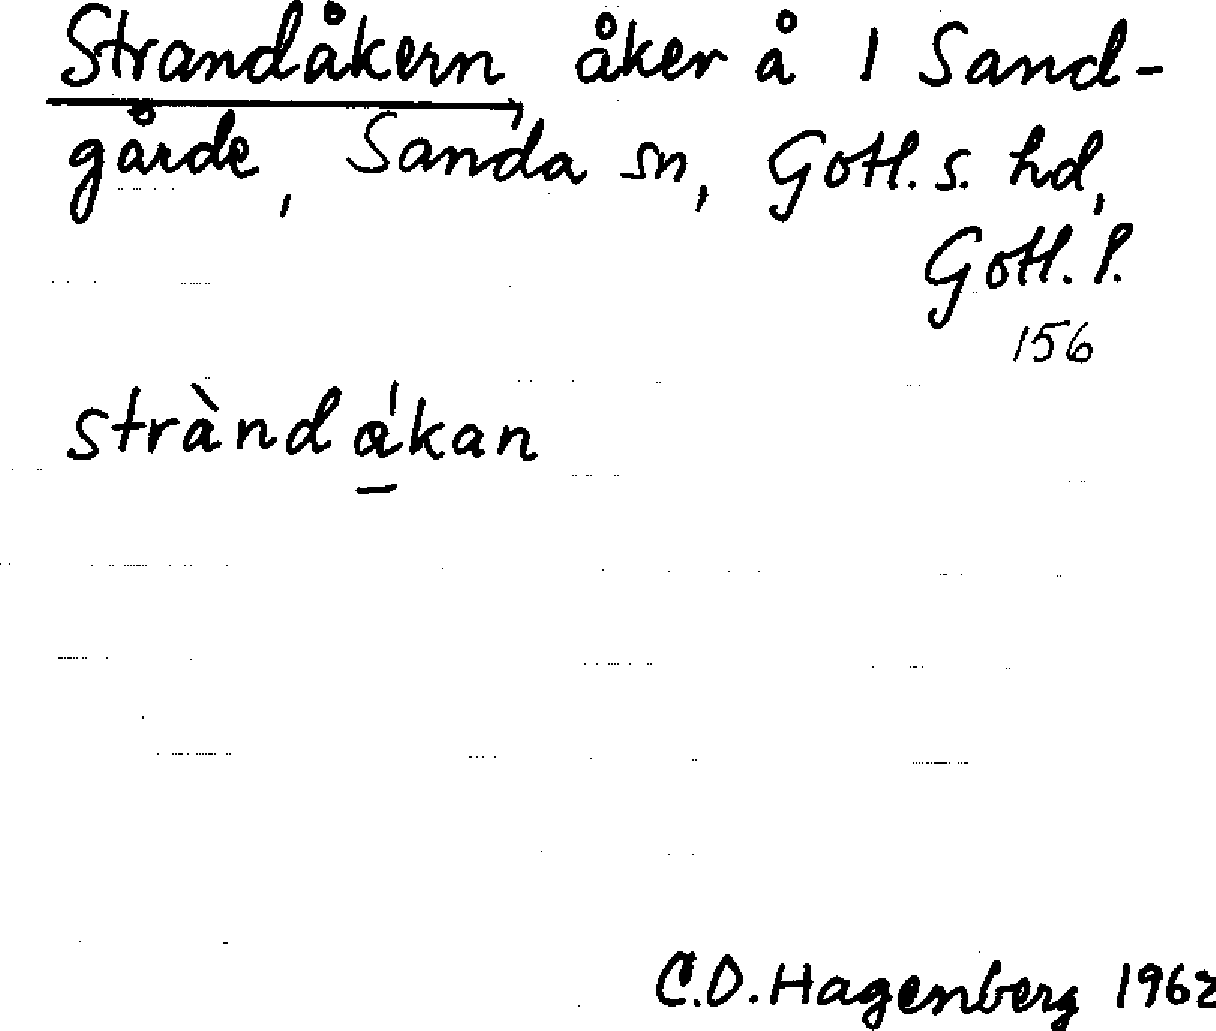 Strandåkern, åker å 1 Sand-
gårde, Sanda sn, Gotl. s. hd,
Gotl. l.
156
stràndá̱kan
C.O. Hagenberg 1962